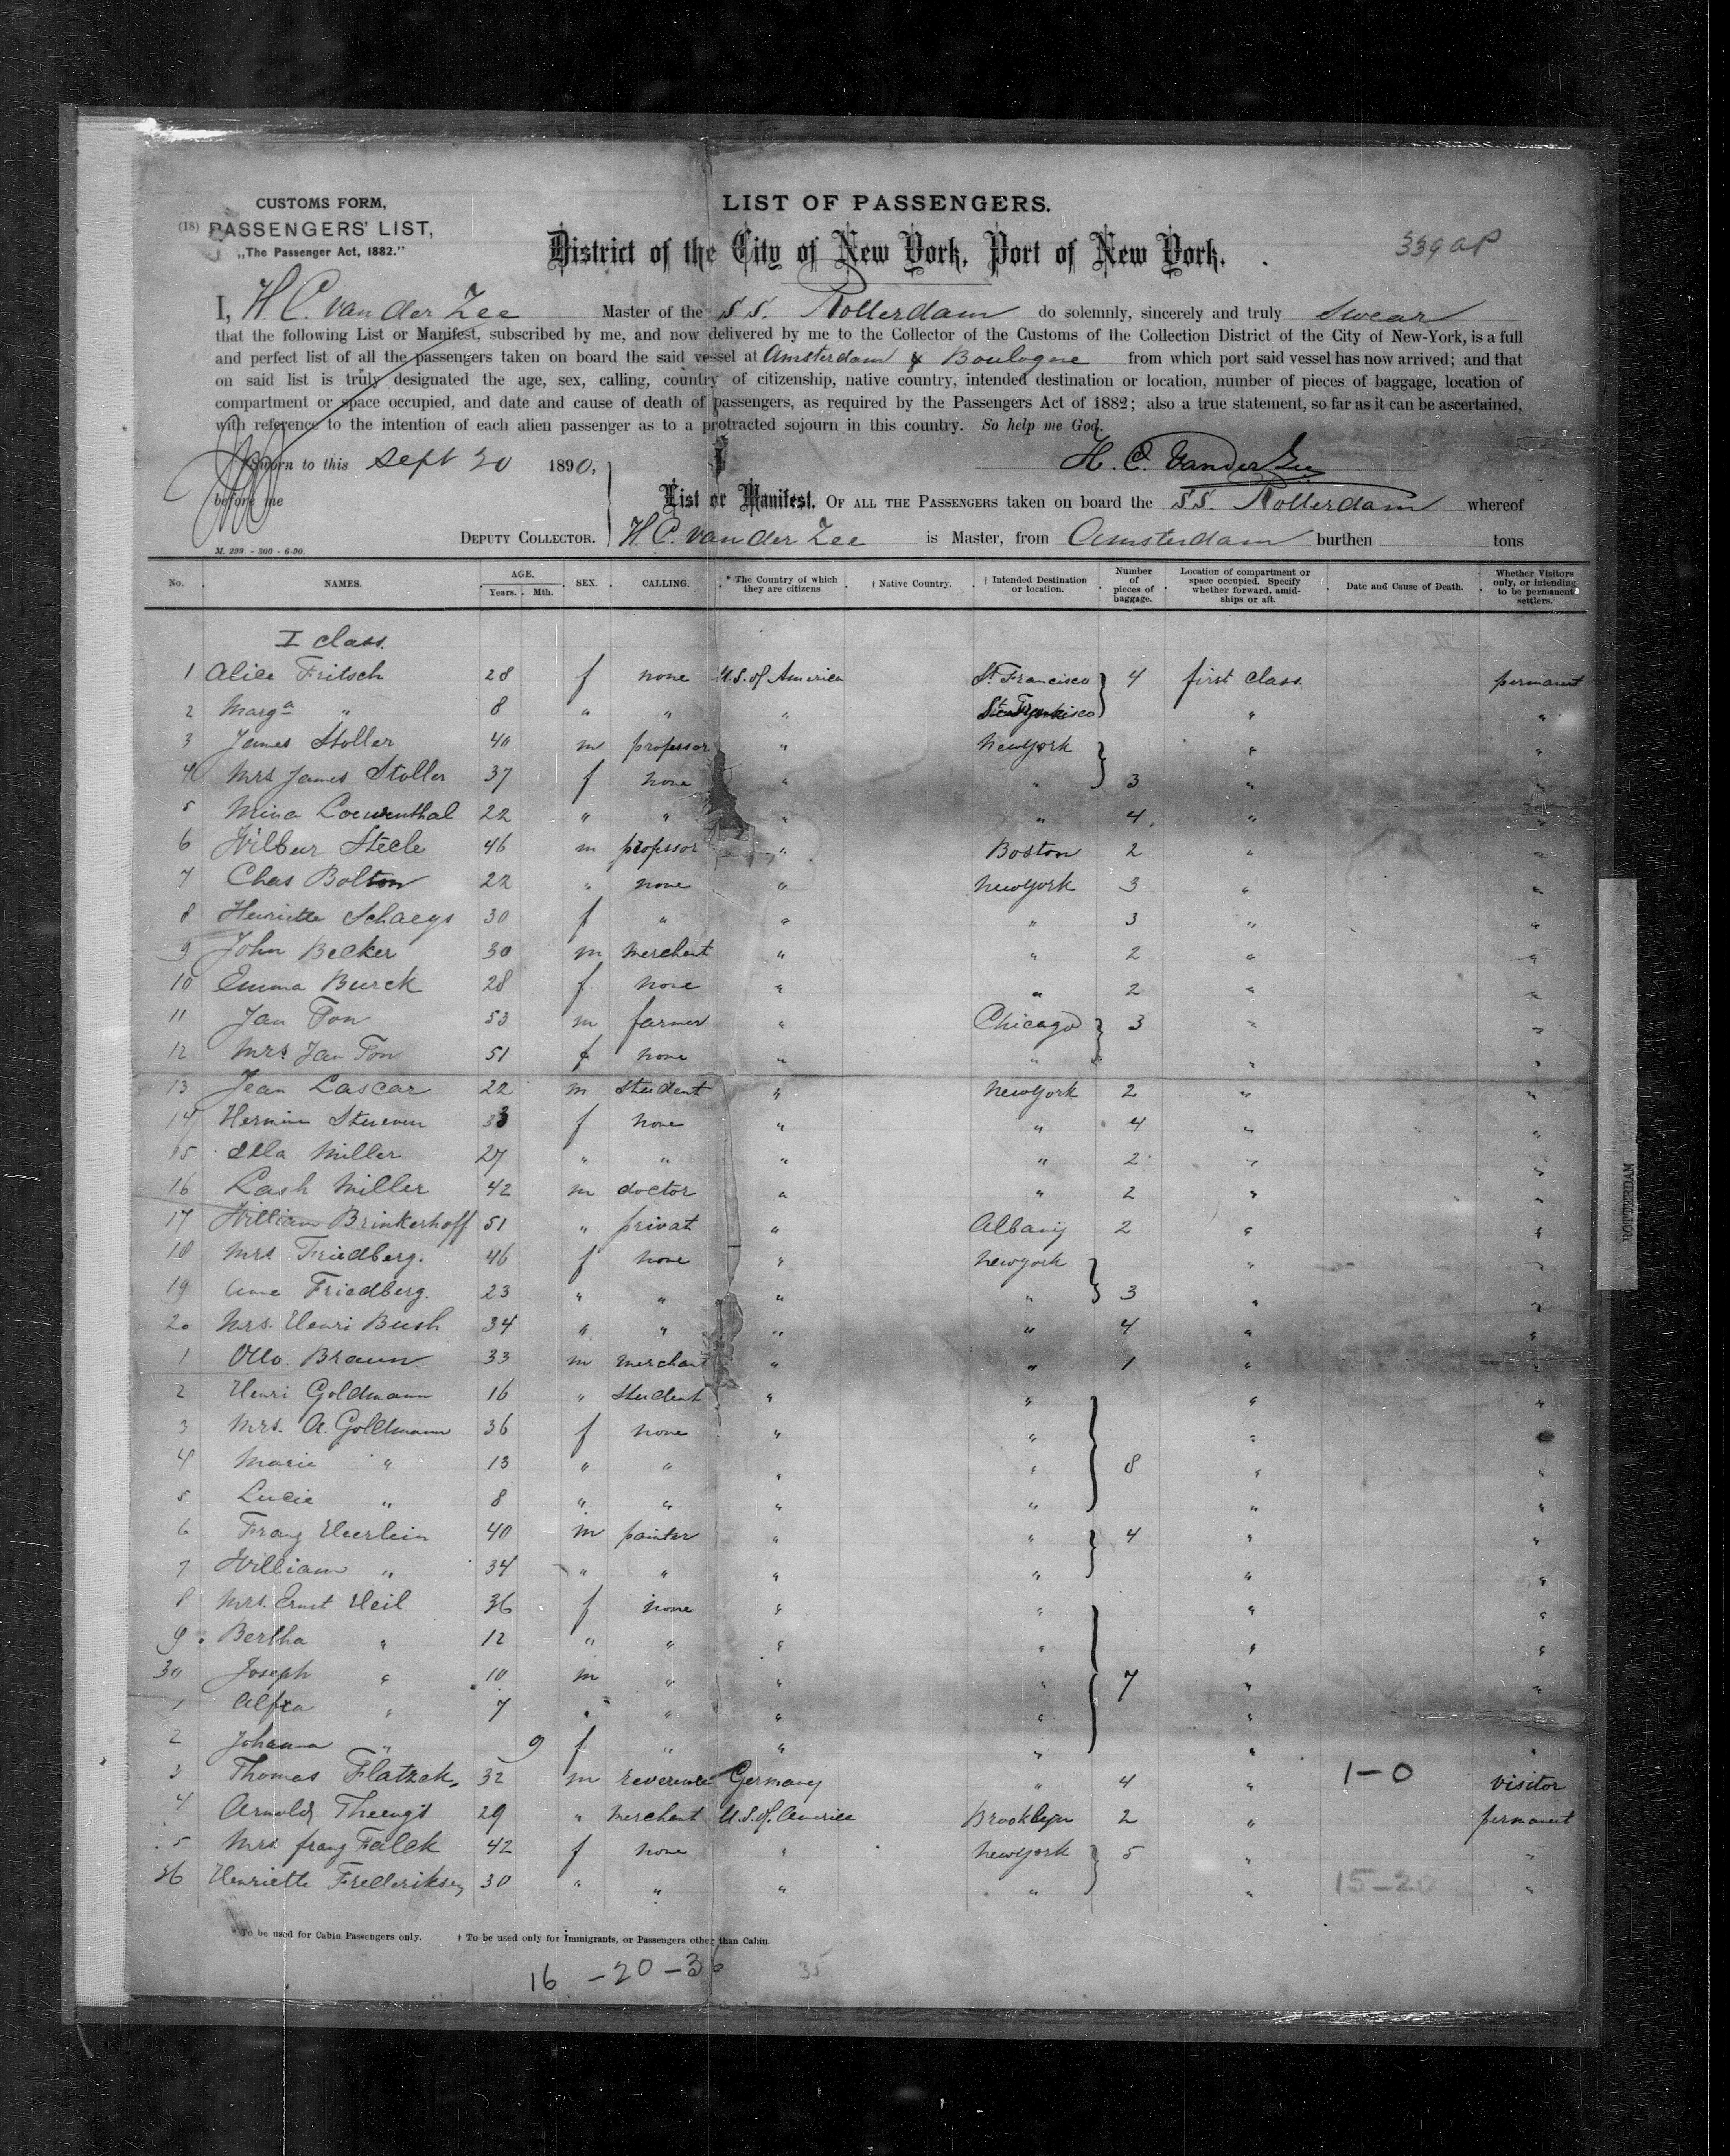 CUSTOMS FORM,
(18) PASSENGERS' LIST,
„The Passenger Act, 1882."
LIST OF PASSENGERS.
District of the City of New York, Port of New York.
339 
I, H. C. van der Zee Master of the S.S. Rotterdam do solemnly, sincerely and truly swear
that the following List or Manifest, subscribed by me, and now delivered by me to the Collector of the Customs of the Collection District of the City of New-York, is a full
and perfect list of all the passengers taken on board the said vessel at Amsterdam & Boulogne from which port said vessel has now arrived; and that
on said list is truly designated the age, sex, calling, country of citizenship, native country, intended destination or location, number of pieces of baggage, location of
compartment or space occupied, and date and cause of death of passengers, as required by the Passengers Act of 1882; also a true statement, so far as it can be ascertained,
with reference to the intention of each alien passenger as to a protracted sojourn in this country. So help me God.
Sworn to this Sept 20 1890, H. C. Van der Zee
before me List or Manifest, OF ALL THE PASSENGERS taken on board the S.S. Rotterdam whereof
DEPUTY COLLECTOR. H. C. van der Zee is Master, from Amsterdam burthen tons
M. 299. - 300 - 6-90.
No. NAMES. AGE. Years. Mth. SEX. CALLING. * The Country of which they are citizens. † Native Country. † Intended Destination or location. Number of pieces of baggage. Location of compartment or space occupied. Specify whether forward, amidships or aft. Date and Cause of Death. Whether Visitors only, or intending to be permanent settlers.
I class.
1 Alice Fritsch 28 f none U.S. of America St Francisco 4 first class. permanent
2 Marga " 8 " " " " "
3 James Stoller 40 m professor " New York " "
4 Mrs James Stoller 37 f none " " 3 " "
5 Mina Loewenthal 22 " " " " 4 " "
6 Wilbur Steele 46 m professor " Boston 2 " "
7 Chas Bolton 22 " none " New York 3 " "
8 Henriette Schaeys 30 f " " " 3 " "
9 John Becker 30 m merchant " " 2 " "
10 Emma Burck 28 f none " " 2 " "
11 Jan Ton 53 m farmer " Chicago 3 " "
12 Mrs Jan Ton 51 f none " " " "
13 Jean Lascar 22 m student " New York 2 " "
14 Hermine 33 f none " " 4 " "
15 Ella Miller 27 " " " " 2 " "
16 Lash Miller 42 m doctor " " 2 " "
17 William Brinkerhoff 51 " privat " Albany 2 " "
18 Mrs Friedberg. 46 f none " New york " "
19 Anne Friedberg. 23 " " " " 3 " "
20 Mrs. Henri Bush 34 " " " " 4 " "
1 Otto. Braun 33 m merchant " " 1 " "
2 Henri Goldmann 16 " student " " " "
3 Mrs. A. Goldmann 36 f none " " " "
4 Marie " 13 " " " " 8 " "
5 Lucie " 8 " " " " " "
6 Franz Heerlein 40 m painter " " 4 " "
7 William " 34 " " " " " "
8 Mrs. Ernst Heil 36 f none " " " "
9 Bertha " 12 " " " " " "
30 Joseph " 10 m " " " 7 " "
1 " 7 " " " " " "
2 Johanna " 9 f " " " " "
3 Thomas Flatzek, 32 m Germany " 4 " 1-0 visitor
4 Arnold 29 " merchant U.S. of America Brooklyn 2 " permanent
5 Mrs. franz Falck 42 f none " New York 5 " "
36 Henriette Frederiksen 30 " " " " " 15-20 "
* To be used for Cabin Passengers only. † To be used only for Immigrants, or Passengers other than Cabin.
16 - 20 - 36 35
ROTTERDAM